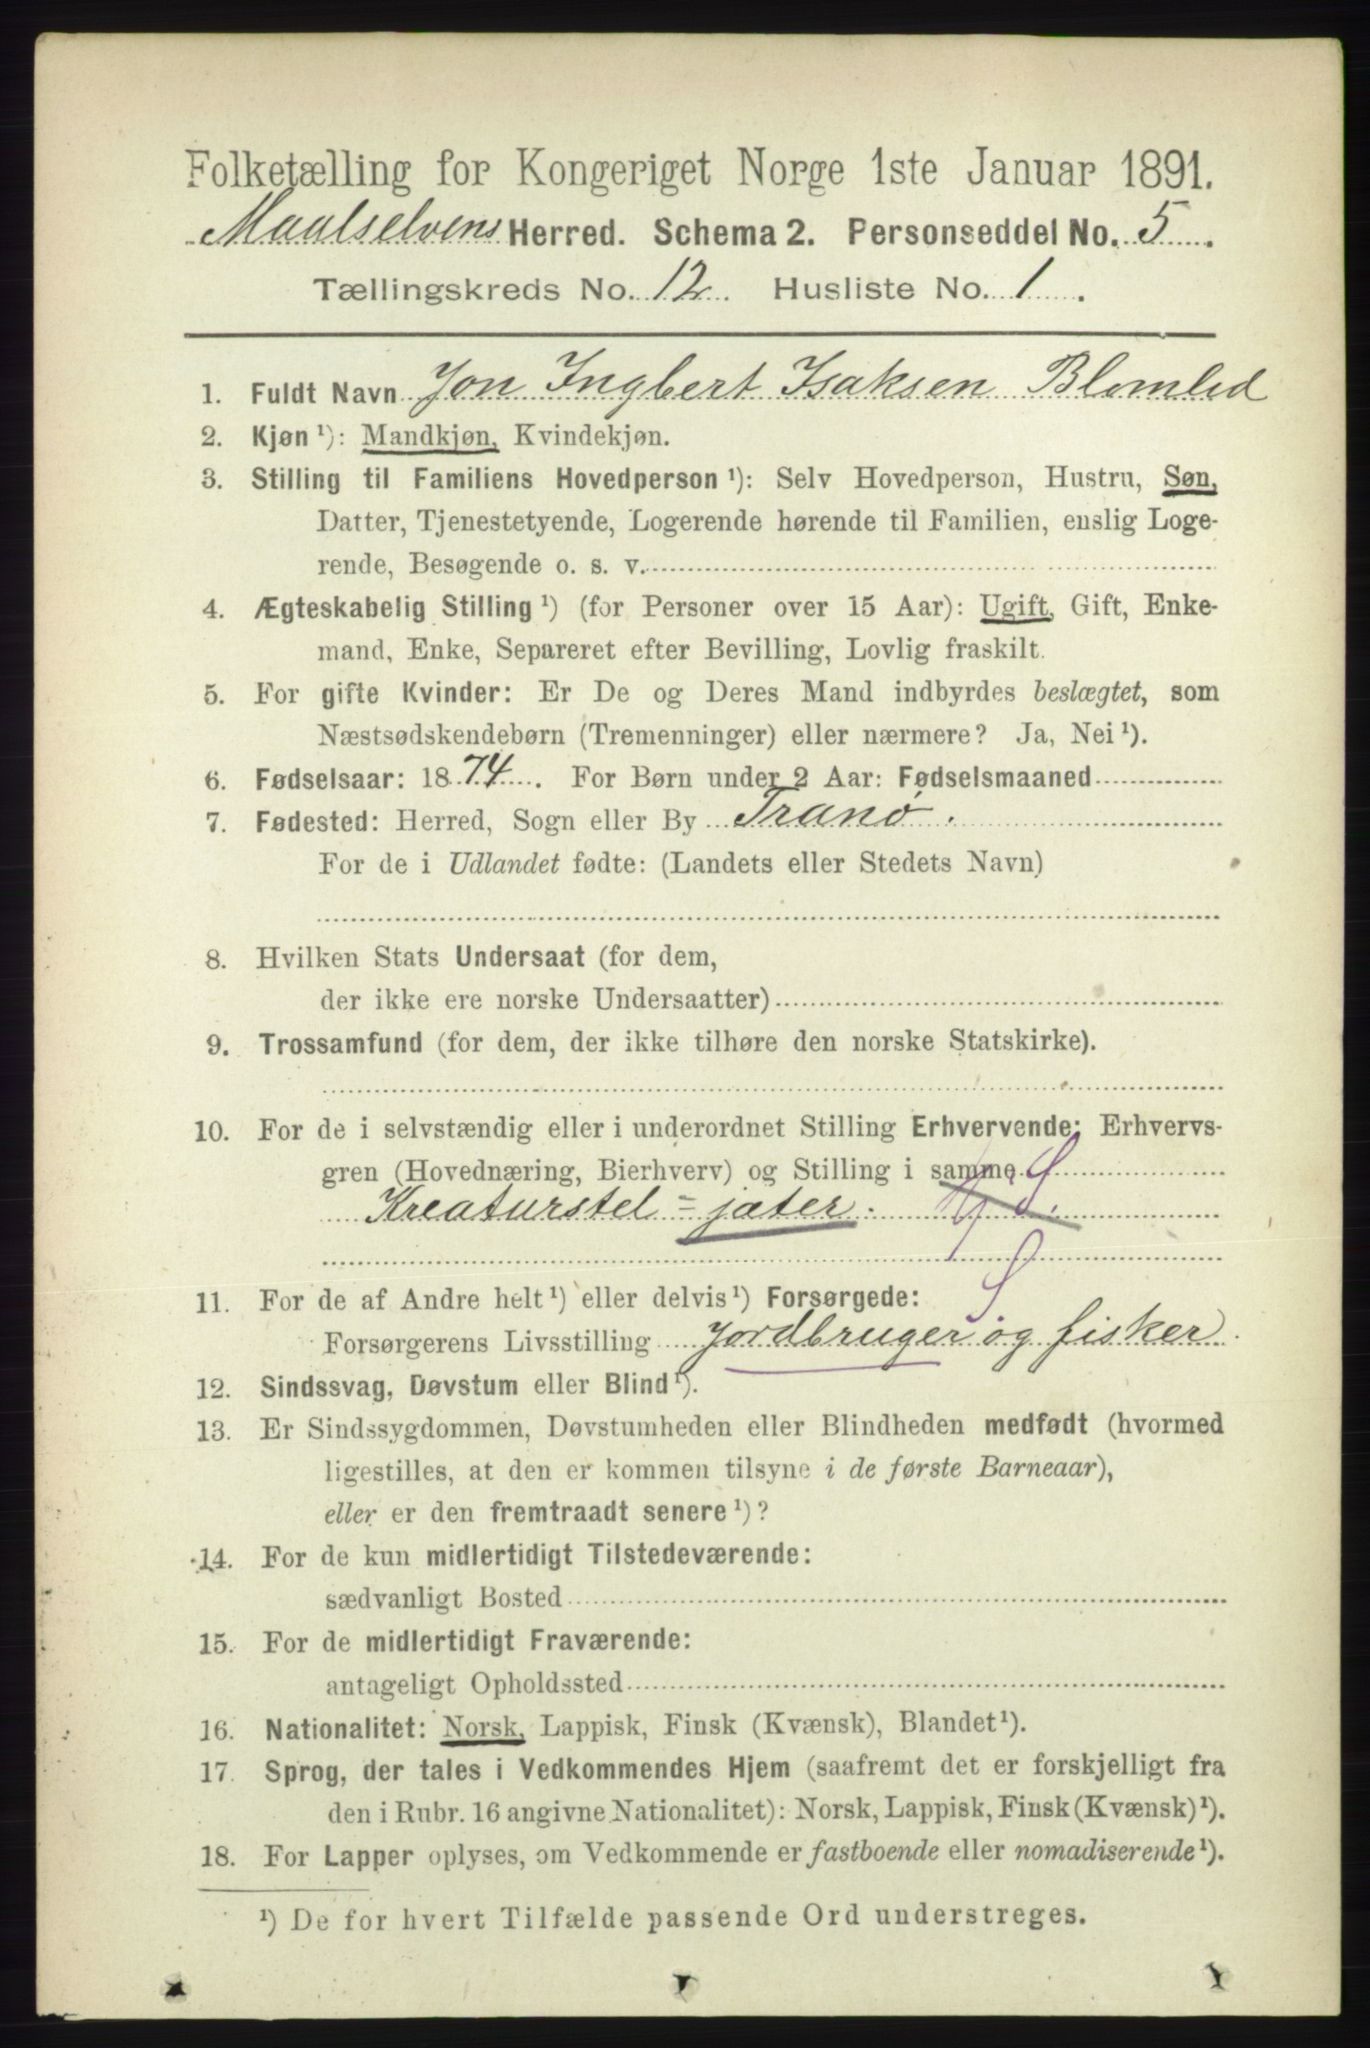 Folketælling for Kongeriget Norge 1ste Januar 1891.
Maalselvens Herred. Schema 2. Personseddel No. 5.
Tællingskreds No. 12. Husliste No. 1.
1. Fuldt Navn Jon Ingbert Isaksen Blomlid
2. Kjøn ¹): Mandkjøn, Kvindekjøn.
3. Stilling til Familiens Hovedperson ¹): Selv Hovedperson, Hustru, Søn,
Datter, Tjenestetyende, Logerende hørende til Familien, enslig Loge-
rende, Besøgende o. s. v.
4. Ægteskabelig Stilling ¹) (for Personer over 15 Aar): Ugift, Gift, Enke-
mand, Enke, Separeret efter Bevilling, Lovlig fraskilt.
5. For gifte Kvinder: Er De og Deres Mand indbyrdes beslægtet, som
Næstsødskendebørn (Tremenninger) eller nærmere? Ja, Nei ¹).
6. Fødselsaar: 1874. For Børn under 2 Aar: Fødselsmaaned
7. Fødested: Herred, Sogn eller By Tranø.
For de i Udlandet fødte: (Landets eller Stedets Navn)
8. Hvilken Stats Undersaat (for dem,
der ikke ere norske Undersaatter)
9. Trossamfund (for dem, der ikke tilhøre den norske Statskirke).
10. For de i selvstændig eller i underordnet Stilling Erhvervende: Erhvervs-
gren (Hovednæring, Bierhverv) og Stilling i samme
Kreaturstel = jæter.
S
11. For de af Andre helt ¹) eller delvis ¹) Forsørgede:
Forsørgerens Livsstilling Jordbruger og fisker.
12. Sindssvag, Døvstum eller Blind ¹).
13. Er Sindssygdommen, Døvstumheden eller Blindheden medfødt (hvormed
ligestilles, at den er kommen tilsyne i de første Barneaar),
eller er den fremtraadt senere ¹)?
14. For de kun midlertidigt Tilstedeværende:
sædvanligt Bosted
15. For de midlertidigt Fraværende:
antageligt Opholdssted
16. Nationalitet: Norsk, Lappisk, Finsk (Kvænsk), Blandet ¹).
17. Sprog, der tales i Vedkommendes Hjem (saafremt det er forskjelligt fra
den i Rubr. 16 angivne Nationalitet): Norsk, Lappisk, Finsk (Kvænsk) ¹).
18. For Lapper oplyses, om Vedkommende er fastboende eller nomadiserende ¹).
¹) De for hvert Tilfælde passende Ord understreges.